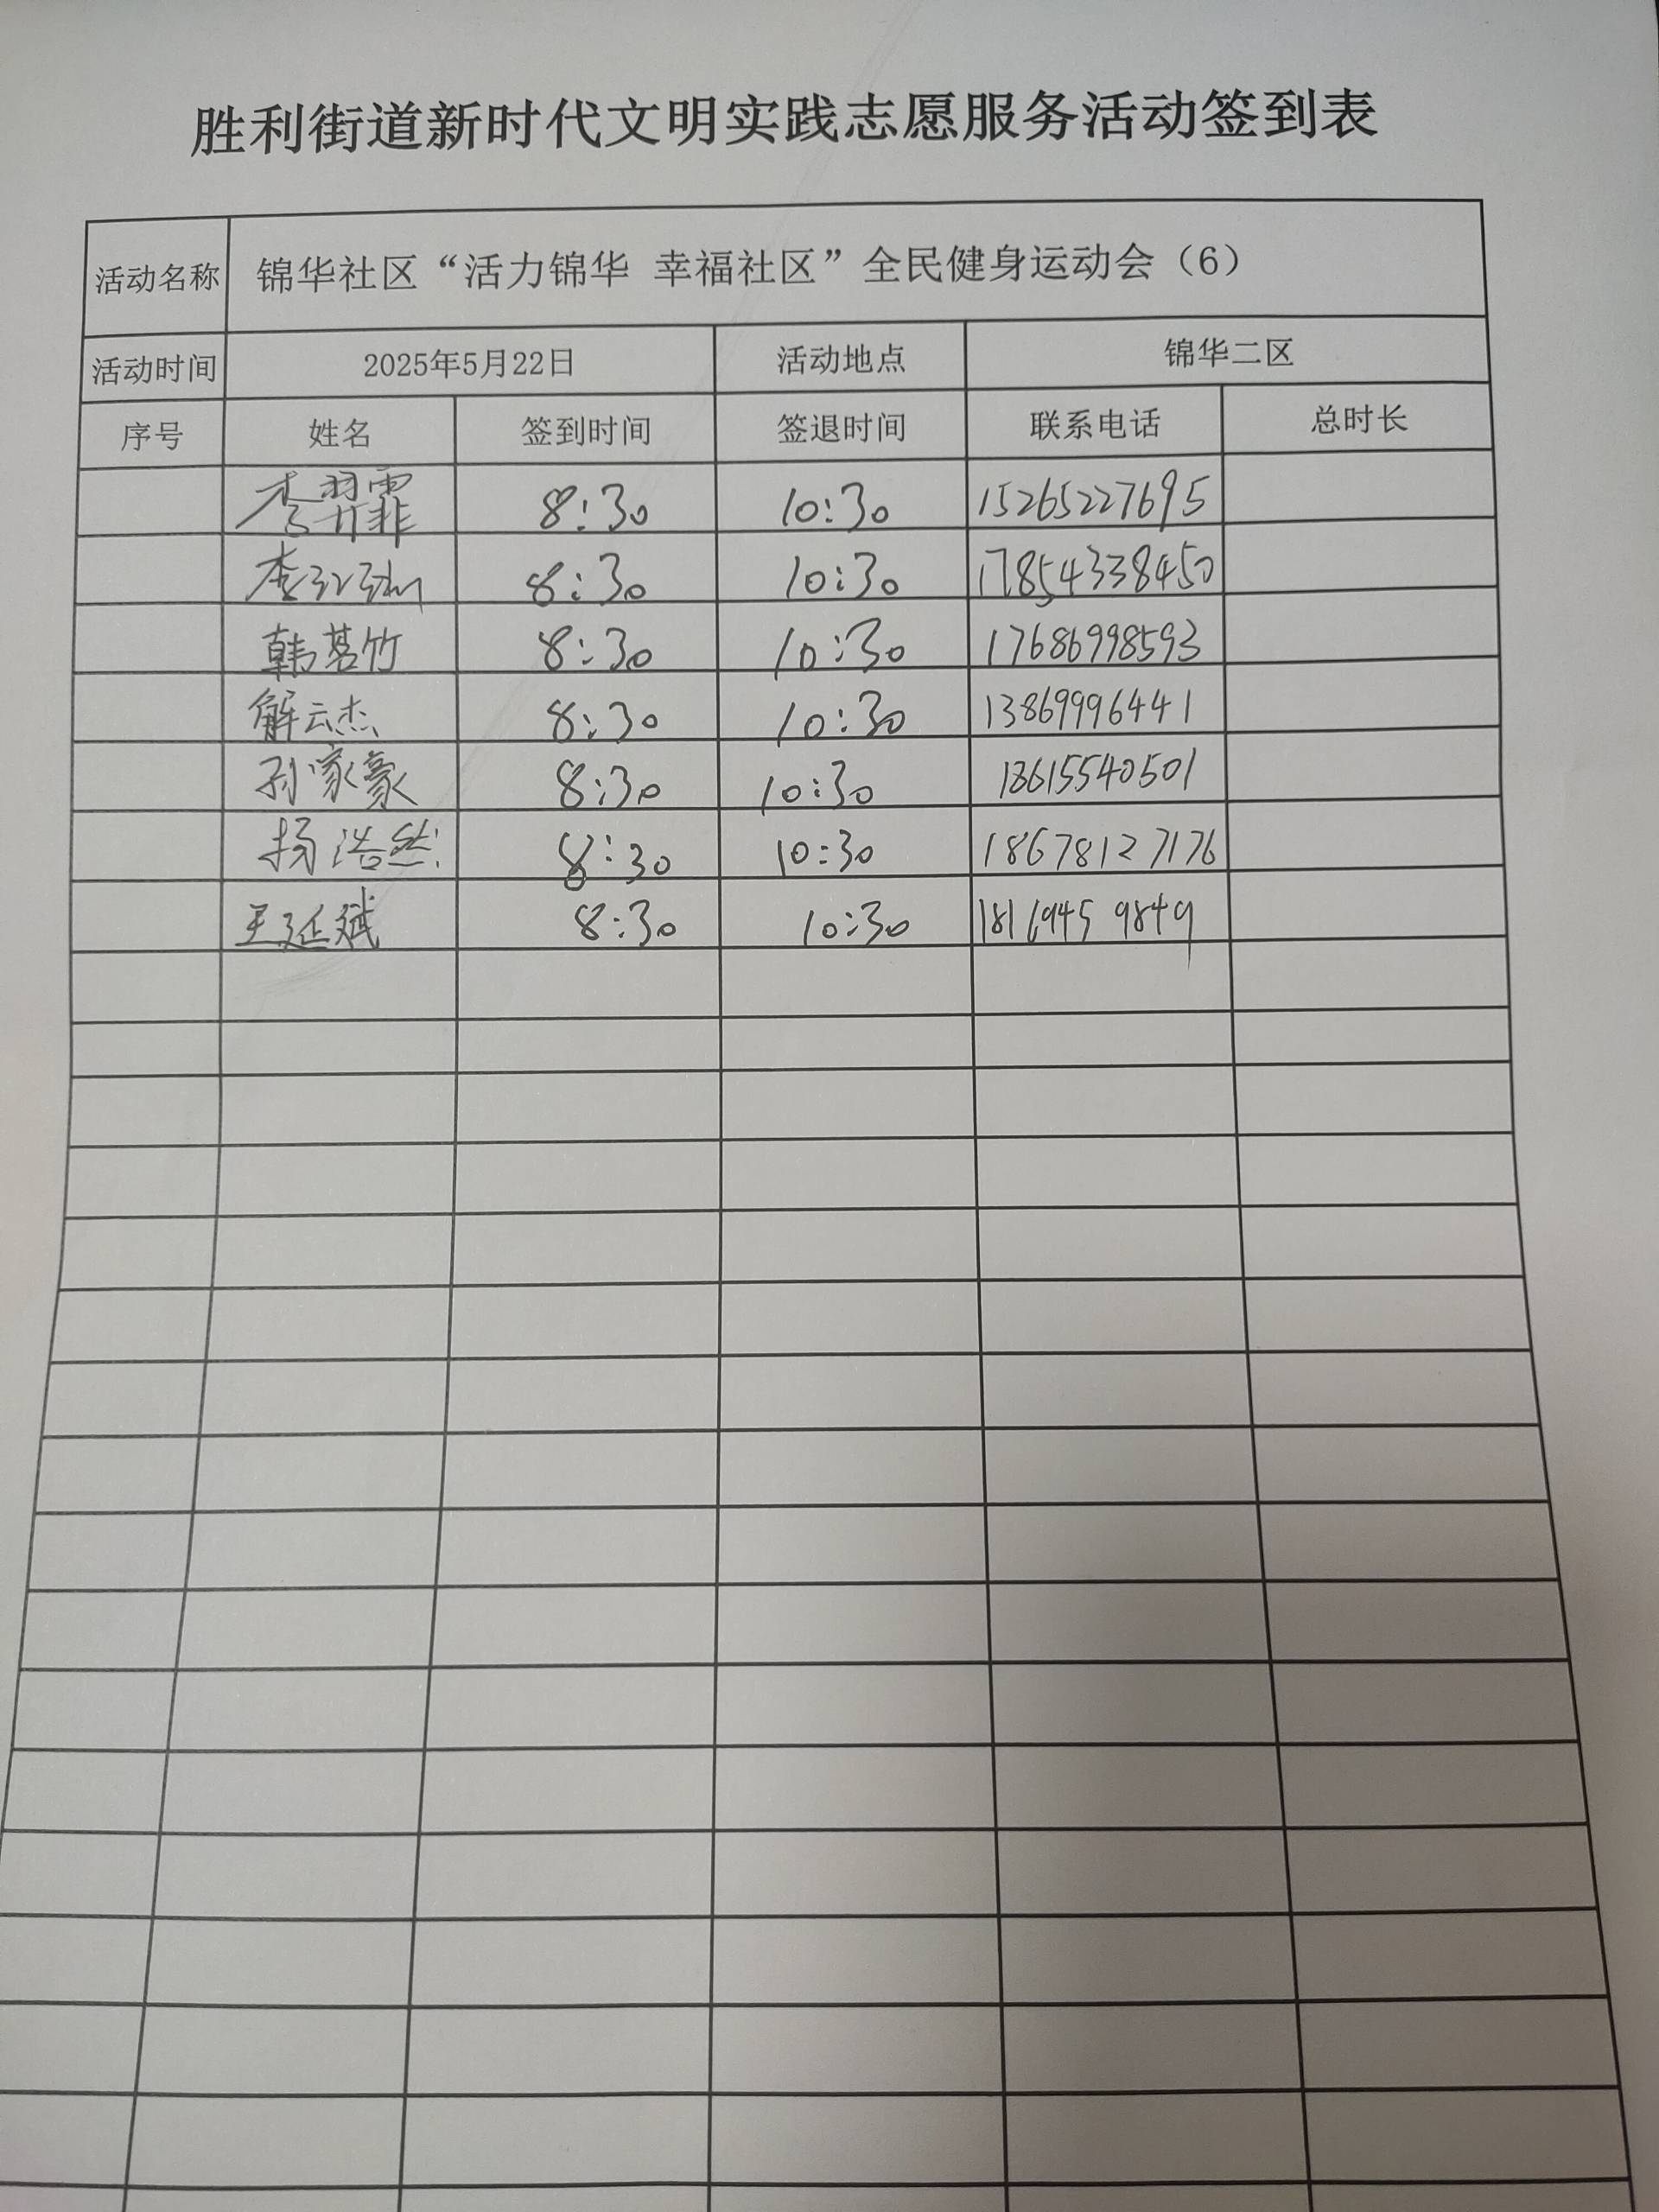 胜利街道新时代文明实践志愿服务活动签到表
活动名称 锦华社区“活力锦华 幸福社区”全民健身运动会（6）
活动时间 2025年5月22日 活动地点 锦华二区
序号 姓名 签到时间 签退时间 联系电话 总时长
李羿霏 8:30 10:30 15265227695
李 8:30 10:30 17854338450
韩茗竹 8:30 10:30 17686998593
解云杰 8:30 10:30 13869996441
孙家豪 8:30 10:30 18615540501
杨浩然 8:30 10:30 18678127176
王延斌 8:30 10:30 18169459849